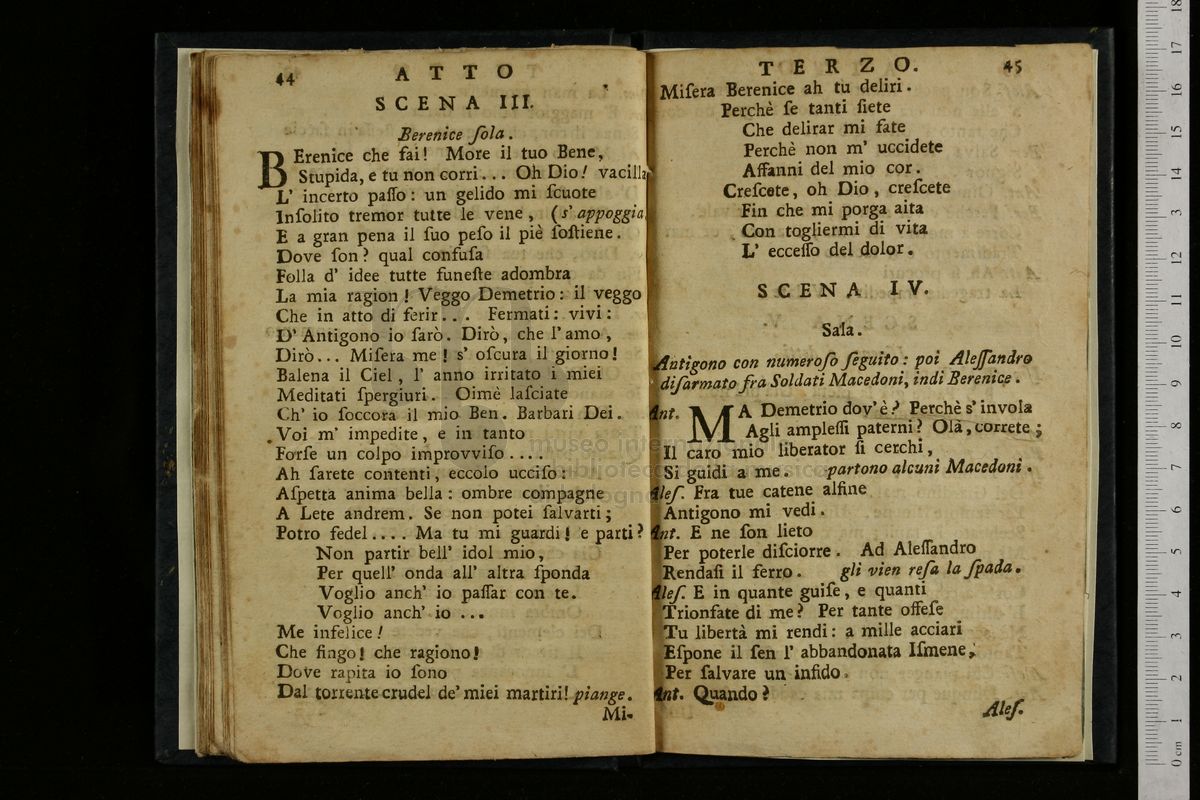 44
ATTO
SCENA III.
Berenice ſola.
BErenice che fai! More il tuo Bene,
Stupida, e tu non corri... Oh Dio! vacilla
L' incerto paſſo: un gelido mi ſcuote
Inſolito tremor tutte le vene, (s' appoggia.
E a gran pena il ſuo peſo il piè ſoſtiene.
Dove ſon? qual confuſa
Folla d' idee tutte funeſte adombra
La mia ragion! Veggo Demetrio: il veggo
Che in atto di ferir... Fermati: vivi:
D' Antigono io ſarò. Dirò, che l' amo,
Dirò... Miſera me! s' oſcura il giorno!
Balena il Ciel, l' anno irritato i miei
Meditati ſpergiuri. Oimè laſciate
Ch' io ſoccora il mio Ben. Barbari Dei.
Voi m' impedite, e in tanto
Forſe un colpo improvviſo ....
Ah ſarete contenti, eccolo ucciſo:
Aſpetta anima bella: ombre compagne
A Lete andrem. Se non potei ſalvarti;
Potro fedel.... Ma tu mi guardi! e parti?
Non partir bell' idol mio,
Per quell' onda all' altra ſponda
Voglio anch' io paſſar con te.
Voglio anch' io ...
Me infelice!
Che fingo! che ragiono!
Dove rapita io ſono
Dal torrente crudel de' miei martiri! piange.
Mi-
TERZO.
45
Miſera Berenice ah tu deliri.
Perchè ſe tanti ſiete
Che delirar mi fate
Perchè non m' uccidete
Affanni del mio cor.
Creſcete, oh Dio, creſcete
Fin che mi porga aita
Con togliermi di vita
L' ecceſſo del dolor.
SCENA IV.
Sala.
Antigono con numeroſo ſeguito: poi Aleſſandro
diſarmato fra Soldati Macedoni, indi Berenice.
Ant. MA Demetrio dov' è? Perchè s' invola
Agli ampleſſi paterni? Olà, correte;
Il caro mio liberator ſi cerchi,
Si guidi a me. partono alcuni Macedoni.
Aleſ. Fra tue catene alfine
Antigono mi vedi.
Ant. E ne ſon lieto
Per poterle diſciorre. Ad Aleſſandro
Rendaſi il ferro. gli vien reſa la ſpada.
Aleſ. E in quante guiſe, e quanti
Trionfate di me? Per tante offeſe
Tu libertà mi rendi: a mille acciari
Eſpone il ſen l' abbandonata Iſmene,
Per ſalvare un infido.
Ant. Quando?
Aleſ.